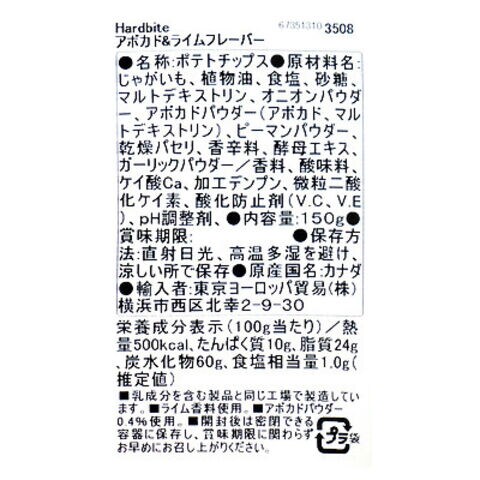 Hardbite 67351310 3508
アボカド&ライムフレーバー
●名称:ポテトチップス●原材料名:
じゃがいも、植物油、食塩、砂糖、
マルトデキストリン、オニオンパウダ
ー、アボカドパウダー(アボカド、マル
トデキストリン)、ピーマンパウダー、
乾燥パセリ、香辛料、酵母エキス、
ガーリックパウダー/香料、酸味料、
ケイ酸Ca、加工デンプン、微粒二酸
化ケイ素、酸化防止剤(V.C、V.E
)、pH調整剤、●内容量:150g●
賞味期限: ●保存方
法:直射日光、高温多湿を避け、
涼しい所で保存●原産国名:カナダ
●輸入者:東京ヨーロッパ貿易(株)
横浜市西区北幸2-9-30
栄養成分表示(100g当たり)/熱
量500kcal、たんぱく質10g、脂質24g
、炭水化物60g、食塩相当量1.0g(
推定値)
■乳成分を含む製品と同じ工場で製造してい
ます。■ライム香料使用。■アボカドパウダー
0.4%使用。■開封後は密閉できる
容器に保存し、賞味期限に関わらず
お早めにお召し上がりください。
プラ
袋